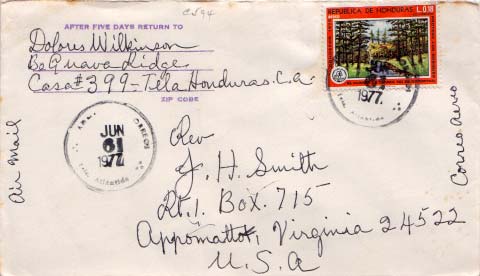 C594
AFTER FIVE DAYS RETURN TO
Dolores Wilkinson
Bo Guava Ridge
Casa #399-Tela Honduras. C.A.
ZIP CODE
REPUBLICA DE HONDURAS
AEREO L.0.18
1977
JUN
1977
CORREOS
Tela, Atlantida
Air Mail
Correo Aereo
Rev
J. H. Smith
Rt. 1. Box. 715
Appomattox, Virginia 24522
U. S. A